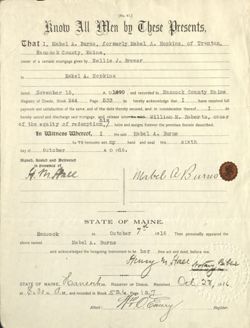 Know All Men by These Presents,
That I, Mabel A. Burns, formerly Mabel A. Hopkins, of Trenton,
Hancock County, Maine,
owner of a certain mortgage given by Nellie J. Brewer
to Mabel A Hopkins
dated November 15, A. D. and recorded in Hancock County Maine
Registry of Deeds, Book 244 Page 533 do hereby acknowledge that I have received full
payment and satisfaction of the same, and of the debt thereby secured, and in consideration thereof I do
hereby cancel and discharge said mortgage, and release unto said William M. Roberts, owner
of the equity of redemption, heirs and assigns forever the premises therein described.
In Witness Whereof, I said Mabel A Burns
have hereunto set my hand and seal this sixth
day of October A. D. 1916.
Signed, Sealed and Delivered
in presence of
H. M. Hall
Mabel A Burns
STATE OF MAINE.
Hancock ss. October 7th 1916 Then personally appeared the above
named Mabel A. Burns
and acknowledged the foregoing instrument to be her free act and deed, before me,
Henry M. Hall
STATE OF MAINE, Hancock ss. Registry of Deeds. Received Oct. 28, 1916
and recorded in Book 526 Page 127
Register.